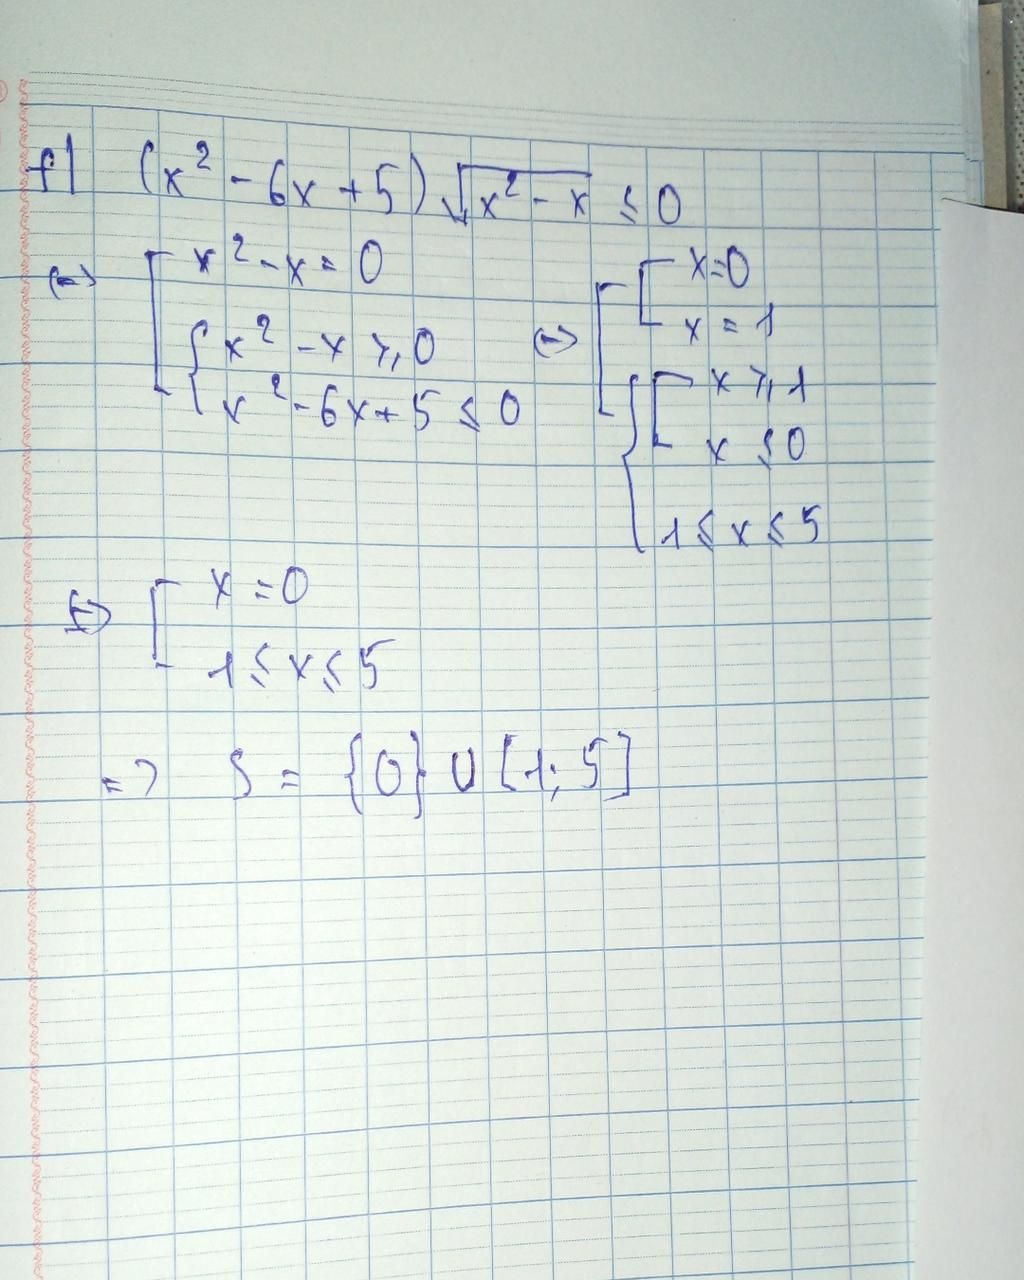 f) (x² - 6x + 5) √(x² - x) ≤ 0
(=) [ x² - x = 0
{ x² - x ≥ 0
x² - 6x + 5 ≤ 0
(=) [ [ x = 0
x = 1
{ [ x ≥ 1
x ≤ 0
1 ≤ x ≤ 5
(=) [ x = 0
1 ≤ x ≤ 5
=> S = {0} ∪ [1; 5]